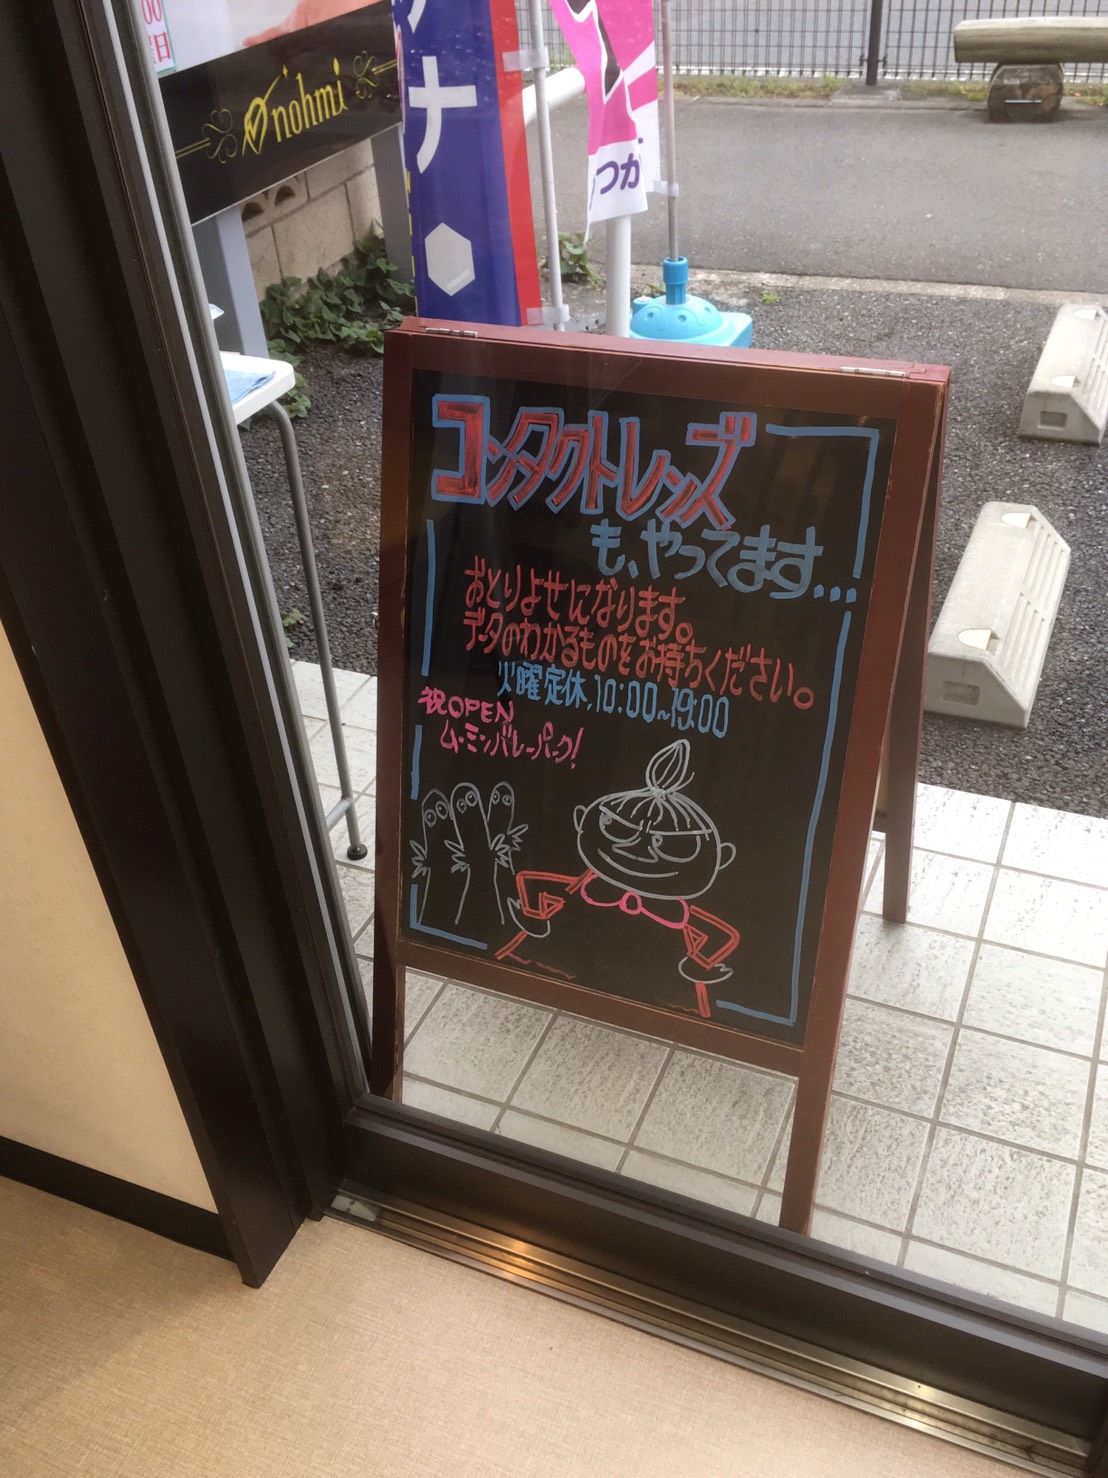 00
曜日
nohmi
ナ
つか
コンタクトレンズ
も、やってます...
おとりよせになります。
データのわかるものをお持ちください。
火曜定休.10:00~19:00
祝OPEN
ムーミンバレーパーク!